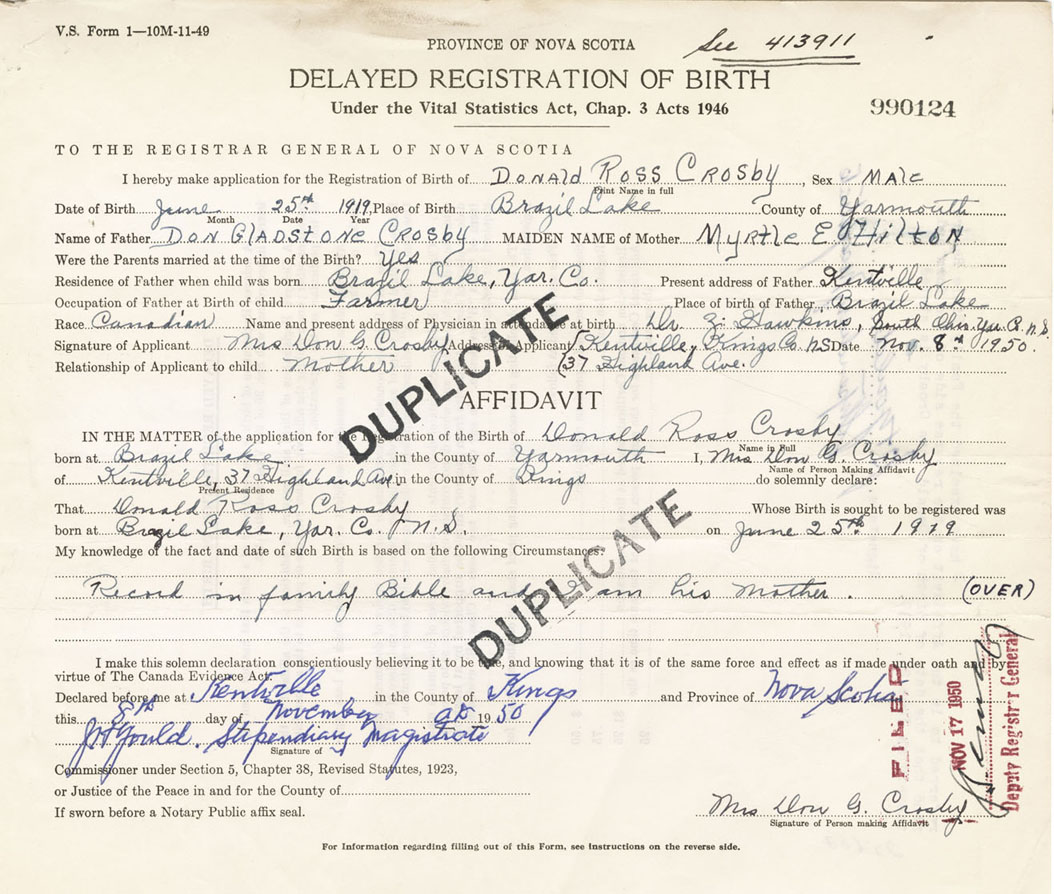 V.S. Form 1—10M-11-49
See 413911
PROVINCE OF NOVA SCOTIA
DELAYED REGISTRATION OF BIRTH
Under the Vital Statistics Act, Chap. 3 Acts 1946
990124
TO THE REGISTRAR GENERAL OF NOVA SCOTIA
I hereby make application for the Registration of Birth of Donald Ross Crosby, Sex Male
Print Name in full
Date of Birth June 25th 1919, Place of Birth Brazil Lake County of Yarmouth
Month Date Year
Name of Father Don Gladstone Crosby MAIDEN NAME of Mother Myrtle E Hilton
Were the Parents married at the time of the Birth? Yes
Residence of Father when child was born Brazil Lake, Yar. Co. Present address of Father Kentville
Occupation of Father at Birth of child Farmer Place of birth of Father Brazil Lake
Race Canadian Name and present address of Physician in attendance at birth Dr Z. Hawkins, South Ohio, Yar. N.S
Signature of Applicant Mrs Don G. Crosby Address of Applicant Kentville, Kings Co. NS Date Nov. 8th 1950.
Relationship of Applicant to child Mother (37 Highland Ave.
DUPLICATE
AFFIDAVIT
IN THE MATTER of the application for the Registration of the Birth of Donald Ross Crosby
Name in Full
born at Brazil Lake in the County of Yarmouth I, Mrs Don G. Crosby
Name of Person Making Affidavit
of Kentville, 37 Highland Ave in the County of Kings do solemnly declare:
Present Residence
That Donald Ross Crosby Whose Birth is sought to be registered was
born at Brazil Lake, Yar. Co. N.S. on June 25th 1919
My knowledge of the fact and date of such Birth is based on the following Circumstances:
Record in family Bible and I am his Mother. (OVER)
DUPLICATE
I make this solemn declaration conscientiously believing it to be true, and knowing that it is of the same force and effect as if made under oath and by
virtue of The Canada Evidence Act.
Declared before me at Kentville in the County of Kings and Province of Nova Scotia
this 8th day of November AD 1950
J H Gould, Stipendiary Magistrate
Signature of
Commissioner under Section 5, Chapter 38, Revised Statutes, 1923,
or Justice of the Peace in and for the County of
If sworn before a Notary Public affix seal.
FILED
NOV 17 1950
Deputy Registrar General
Mrs Don G. Crosby
Signature of Person making Affidavit
For Information regarding filling out of this Form, see instructions on the reverse side.